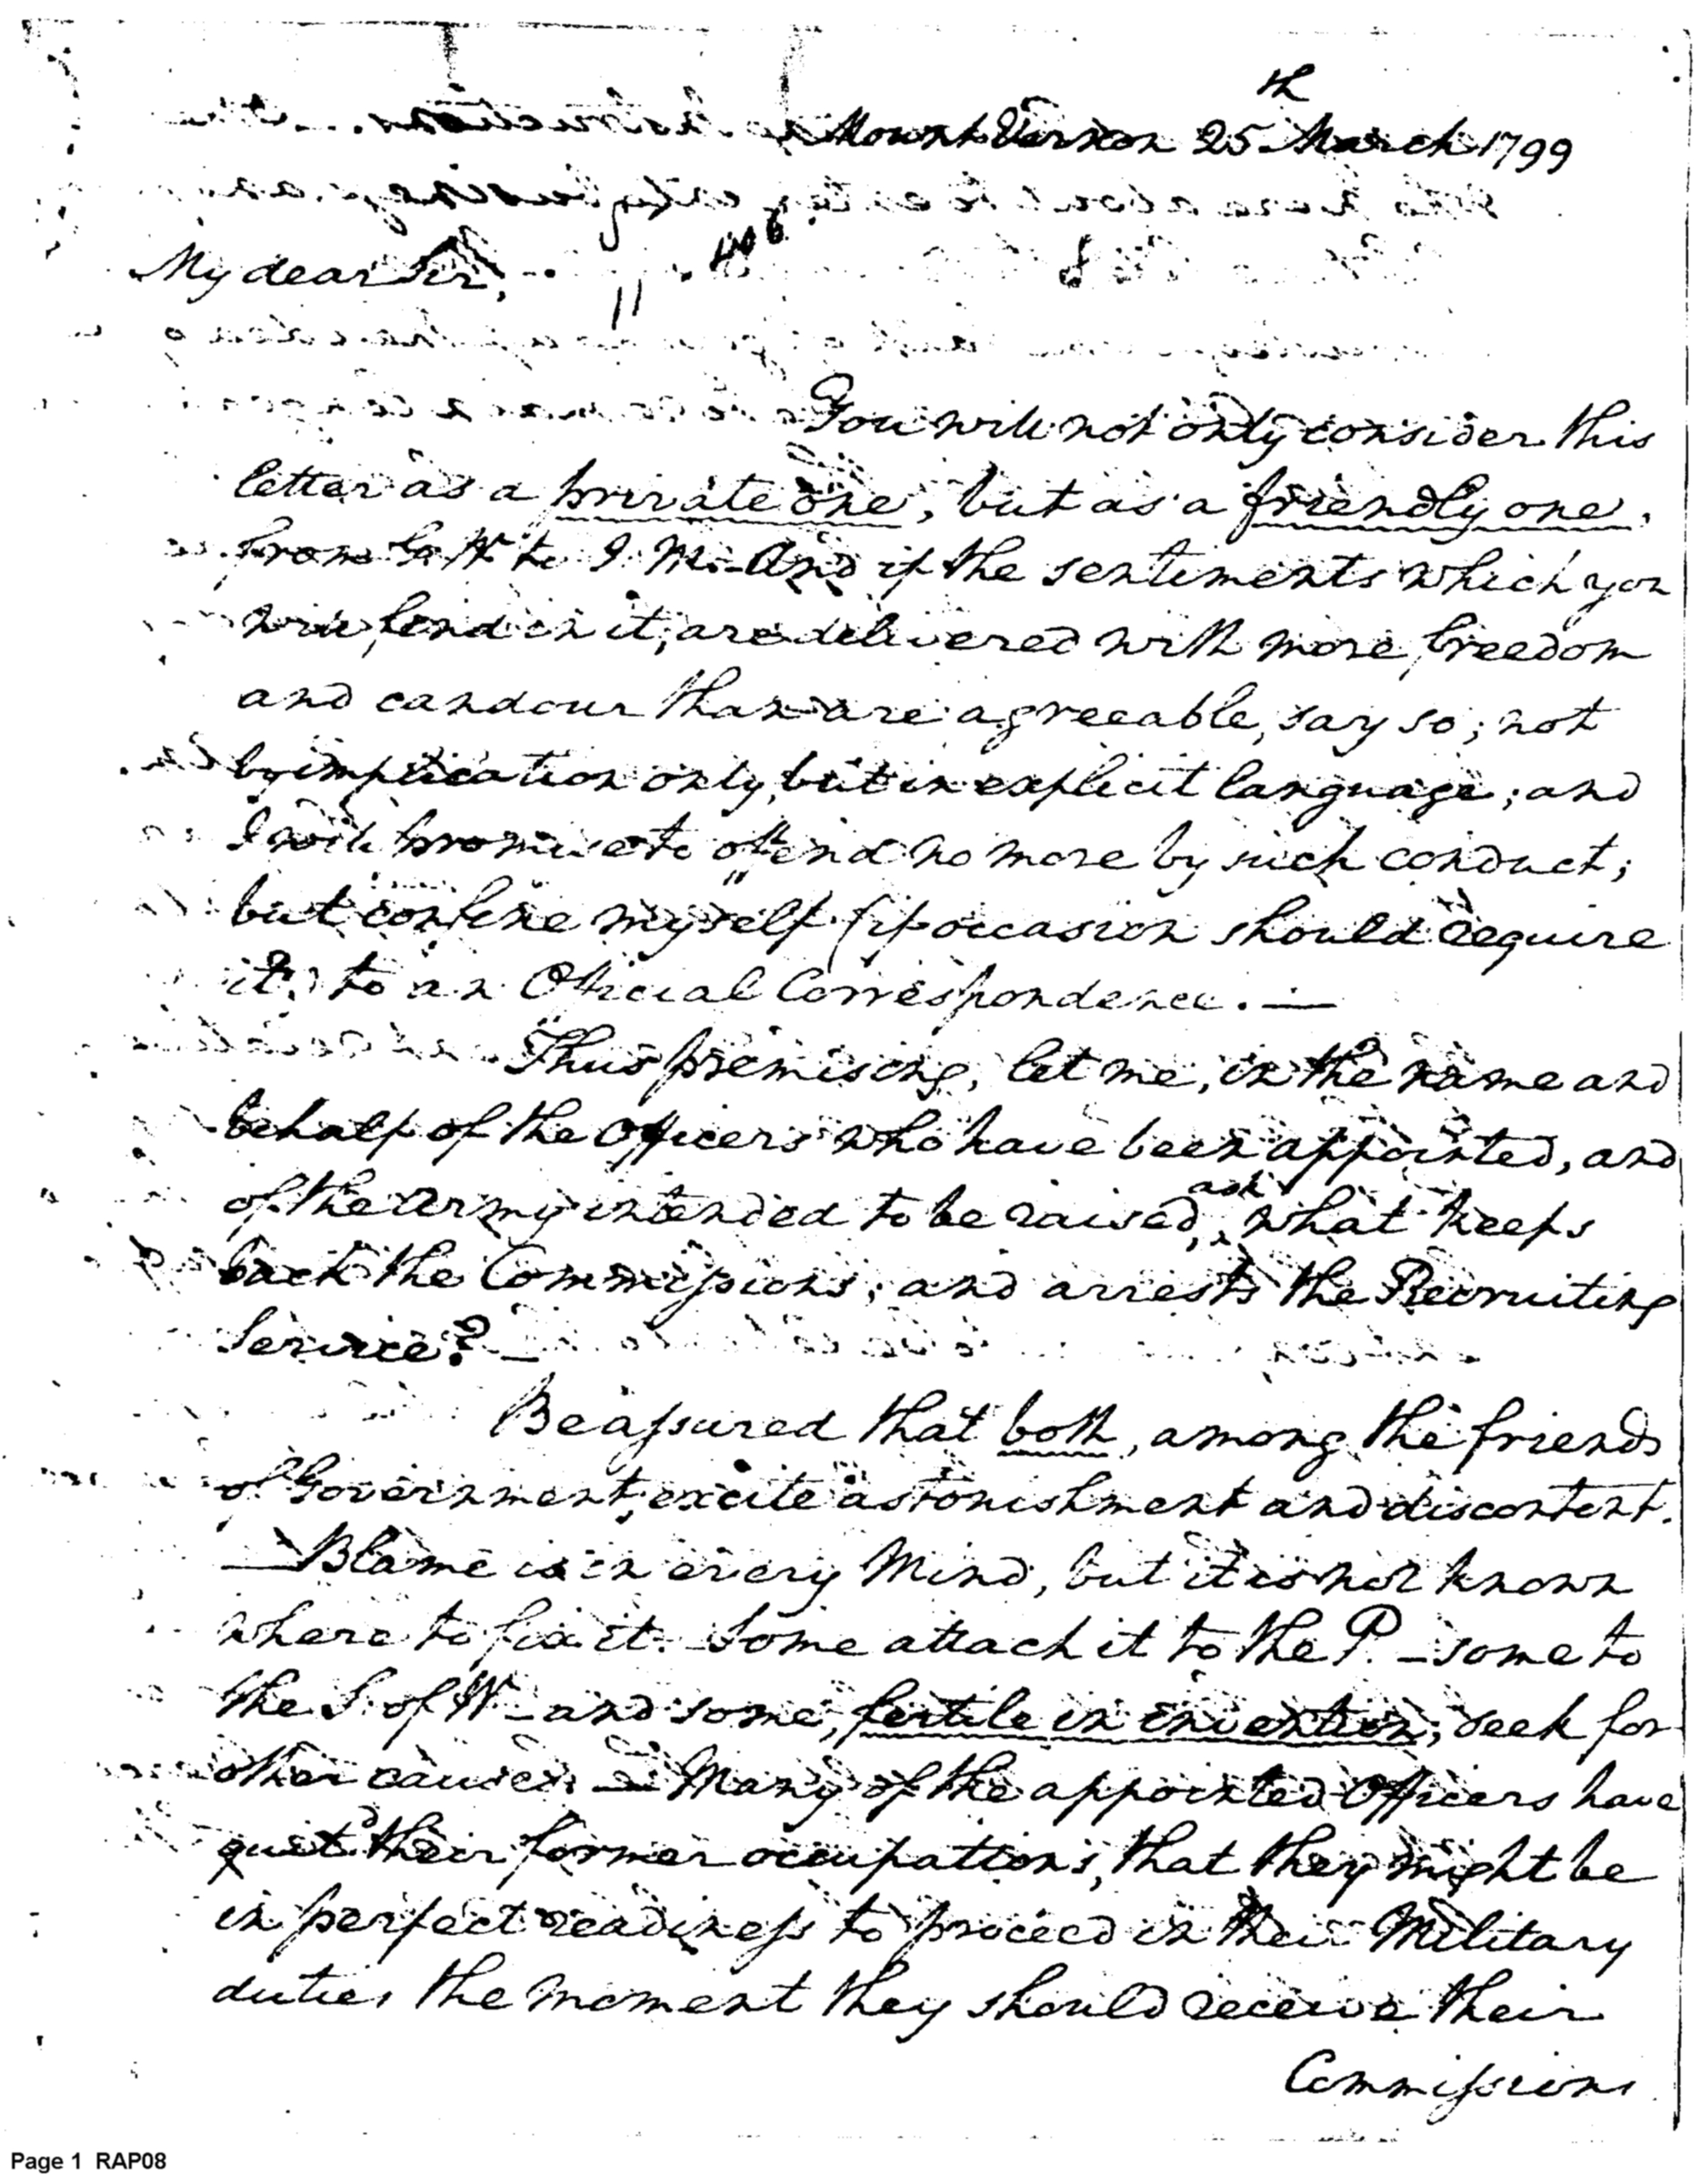 Mount Vernon 25th March 1799
My dear Sir,
You will not only consider this
letter as a private one, but as a friendly one,
from G. W. to J. M. And if the sentiments which you
will find in it, are delivered with more freedom
and candour than are agreeable, say so; not
by implication only, but in explicit language; and
I will promise to offend no more by such conduct;
but confine myself (if occasion should require
it) to an Official Correspondence. —
Thus premising, let me, in the name and
behalf of the Officers who have been appointed, and
of the Army intended to be raised, ask what keeps
back the Commissions; and arrests the Recruiting
Service? —
Be assured that both, among the friends
of Government, excite astonishment and discontent.
— Blame is in every Mind, but it is not known
where to fix it. Some attach it to the P. — some to
the S. of W — and some, fertile in invention, seek for
other causes. — Many of the appointed Officers have
quitd their former occupations, that they might be
in perfect readiness to proceed in their Military
duties the moment they should receive their
Commissions
Page 1 RAP08